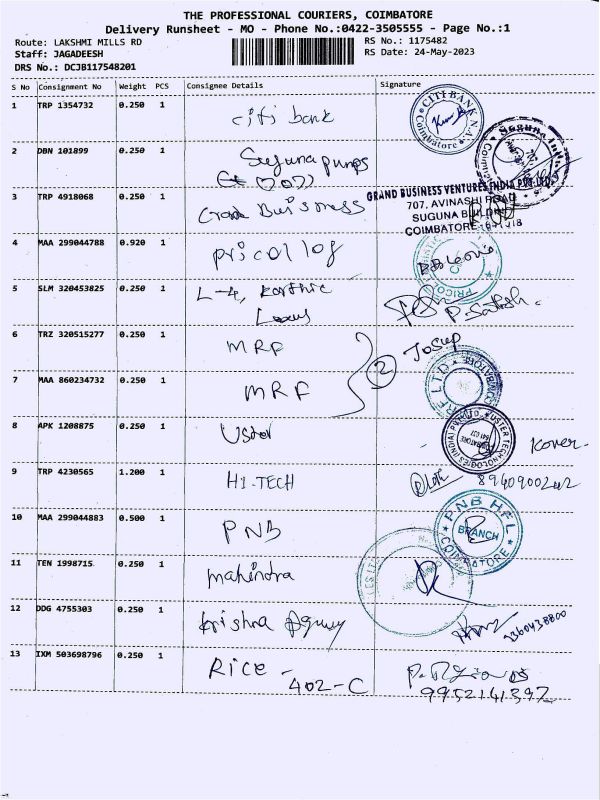 THE PROFESSIONAL COURIERS, COIMBATORE
Delivery Runsheet - MO - Phone No.:0422-3505555 - Page No.:1
Route: LAKSHMI MILLS RD RS No.: 1175482
Staff: JAGADEESH RS Date: 24-May-2023
DRS No.: DCJB117548201
S No Consignment No Weight PCS Consignee Details Signature
1 TRP 1354732 0.250 1 citi bank CITI BANK N.A. Coimbatore
2 DBN 101899 0.250 1 Suguna pumps Suguna
3 TRP 4918068 0.250 1 GRAND BUSINESS VENTURES INDIA PVT. LTD.
707, AVINASHI ROAD
SUGUNA BUILDING
COIMBATORE
4 MAA 299044788 0.920 1 pricol log PRICOL
5 SLM 320453825 0.250 1 L-4, Karthic P. Satish.
6 TRZ 320515277 0.250 1 MRF 2
7 MAA 860234732 0.250 1 MRF MRF LTD
8 APK 1208875 0.250 1 Uster USTER TECHNOLOGIES (INDIA)
9 TRP 4230565 1.200 1 HI-TECH
10 MAA 299044883 0.500 1 PNB PNB HFL BRANCH COIMBATORE
11 TEN 1998715 0.250 1 mahindra
12 DDG 4755303 0.250 1 Krishna
13 IXM 503698796 0.250 1 RICE -
402-C 9952141397